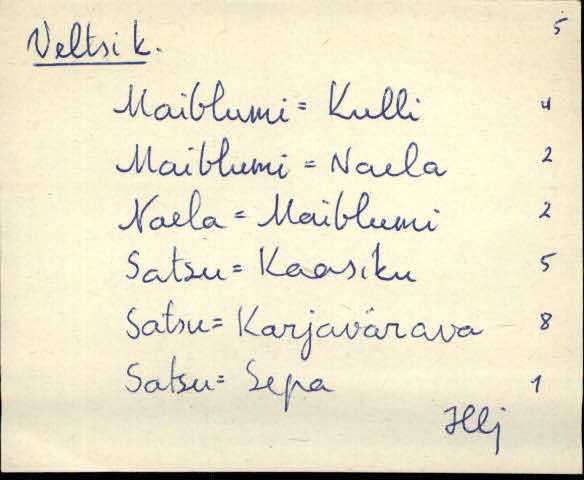 5
Veltsi k.
Maiblumi = Kulli 4
Maiblumi = Naela 2
Naela = Maiblumi 2
Satsu = Kaasiku 5
Satsu = Karjavärava 8
Satsu = Sepa 1